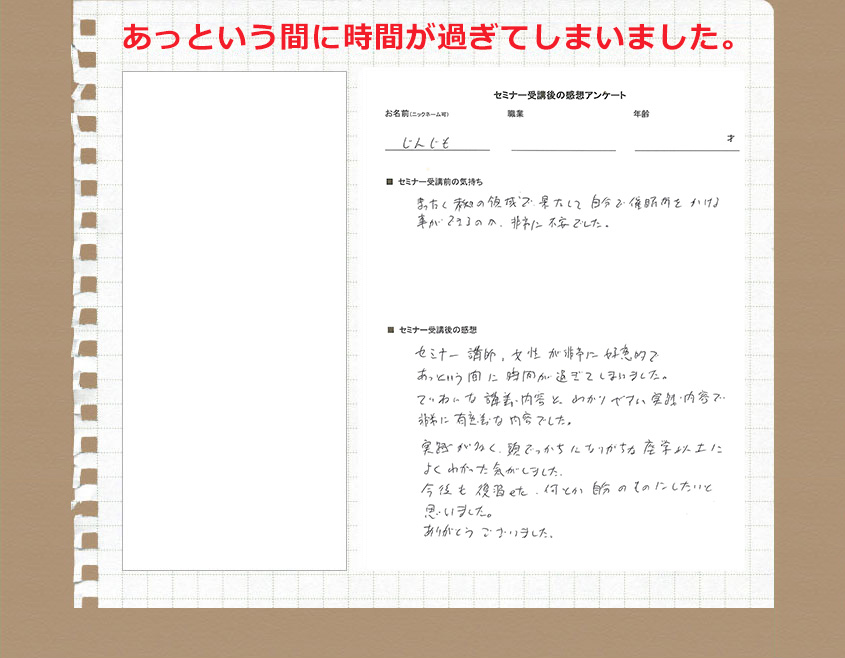 あっという間に時間が過ぎてしまいました。
セミナー受講後の感想アンケート
お名前(ニックネーム可) 職業 年齢
じんじも 才
■ セミナー受講前の気持ち
まったく未知の領域で果たして自分で催眠術をかける
事ができるのか、非常に不安でした。
■ セミナー受講後の感想
セミナー講師、女性が非常に好意的で
あっという間に時間が過ぎてしまいました。
ていねいな講義内容と、わかりやすい実践内容で
非常に有意義な内容でした。
実践が多く、頭でっかちになりがちな座学以上に
よくわかった気がしました。
今後も復習せた、何とか自分のものにしたいと
思いました。
ありがとうございました。